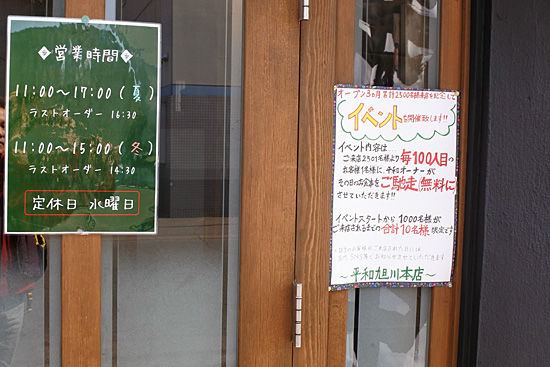 ◆営業時間◆
11:00～17:00（夏）
ラストオーダー 16:30
11:00～15:00（冬）
ラストオーダー 14:30
定休日 水曜日
オープン3ヵ月 累計2500名様来店を記念して
イベントを開催致します!!
イベント内容は
ご来店2501名様より毎100人目の
お客様1名様に、平和オーナーが
その日のお食事をご馳走(無料)に
させていただきます!!
イベントスタートから1000名様が
ご来店されるまでの合計10名様限定です
～平和旭川本店～